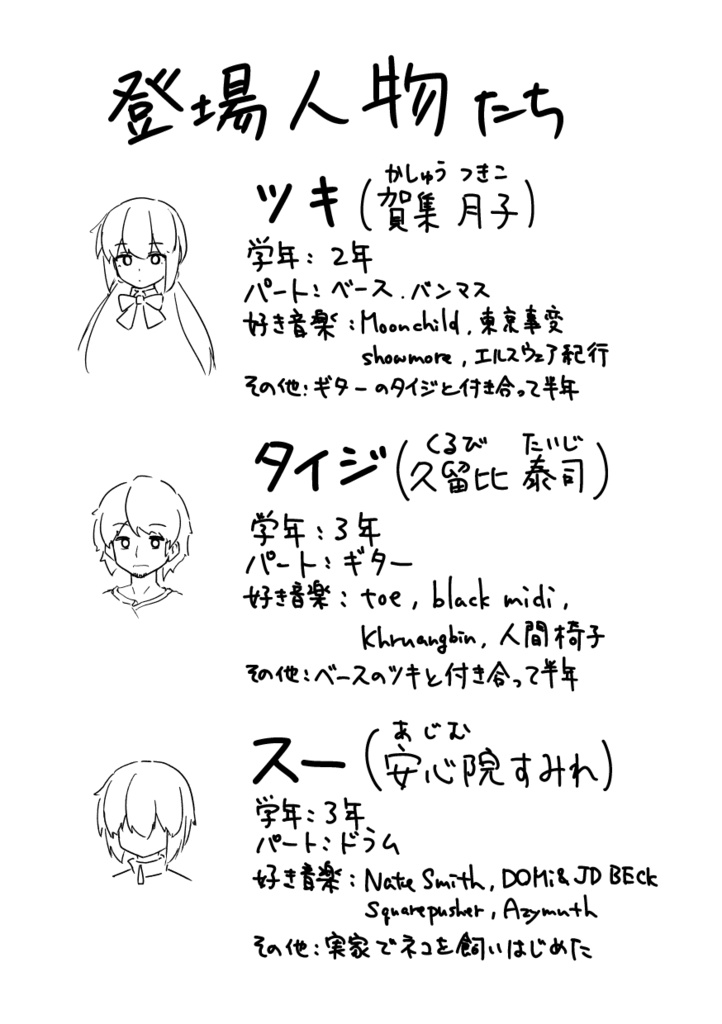 登場人物たち
かしゅう つきこ
ツキ(賀集 月子)
学年:2年
パート:ベース.バンマス
好き音楽:Moonchild,東京事変
showmore,エルスウェア紀行
その他:ギターのタイジと付き合って半年
くるび たいじ
タイジ(久留比 泰司)
学年:3年
パート:ギター
好き音楽:toe,black midi,
Khruangbin,人間椅子
その他:ベースのツキと付き合って半年
あじむ
スー(安心院すみれ)
学年:3年
パート:ドラム
好き音楽:Nate Smith,DOMi&JD BECK
Squarepusher,Azymuth
その他:実家でネコを飼いはじめた